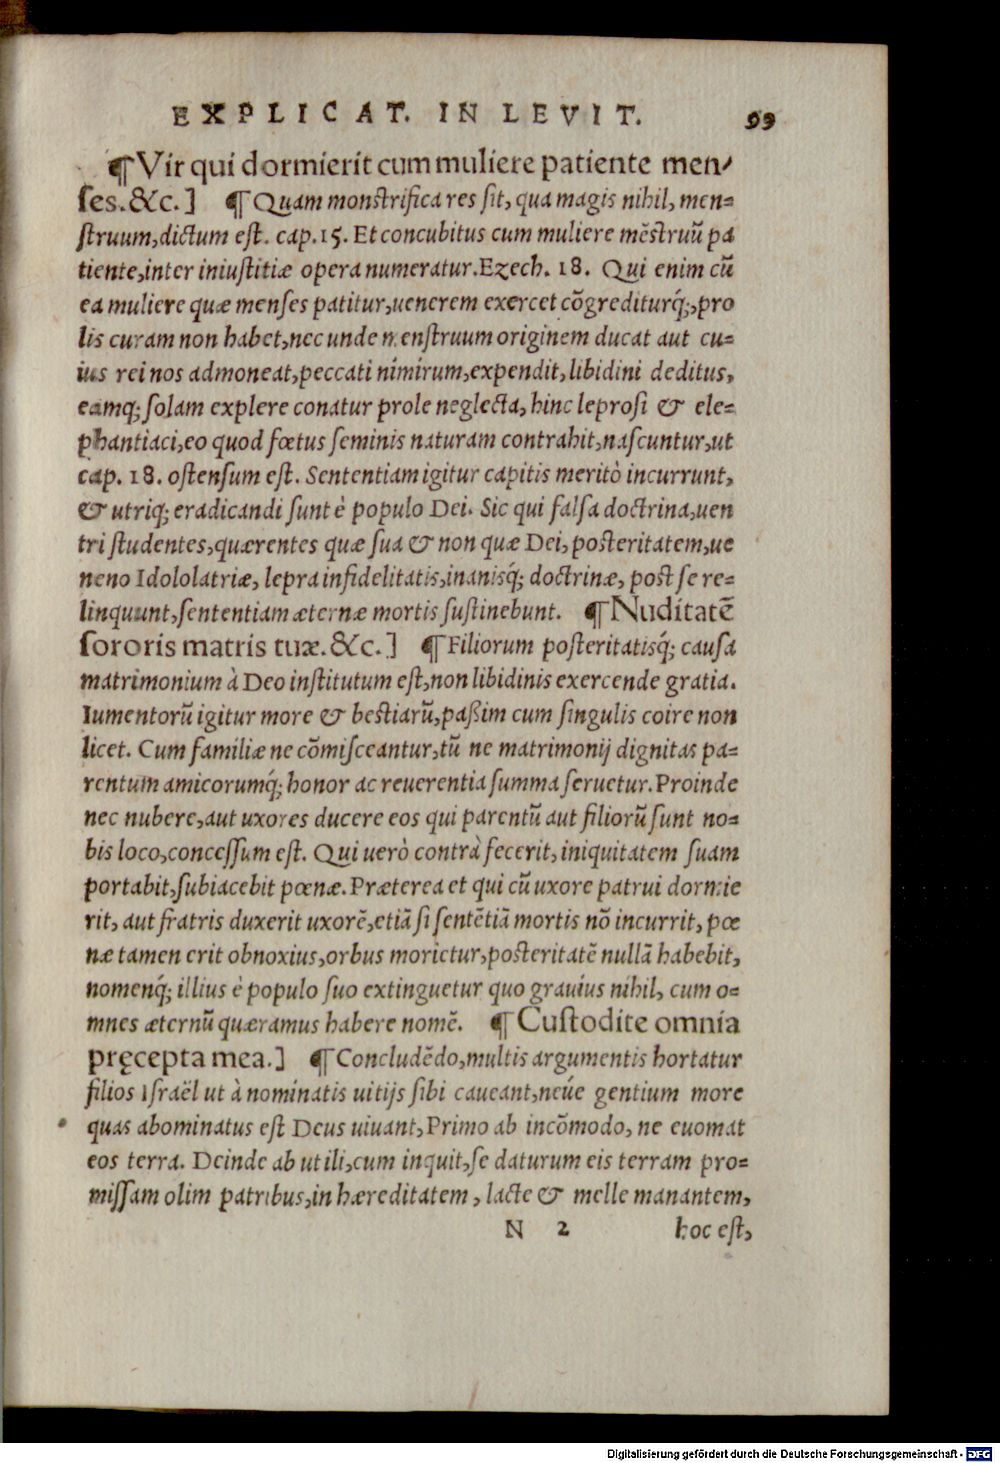 EXPLICAT. IN LEVIT. 99
¶ Vir qui dormierit cum muliere patiente men-
ſes.&c.] ¶ Quam monſtrifica res ſit, qua magis nihil, men=
ſtruum, dictum eſt. cap.15. Et concubitus cum muliere mẽſtruũ pa
tiente, inter iniuſtitiæ opera numeratur. Ezech. 18. Qui enim cũ
ea muliere quæ menſes patitur, uenerem exercet cõgrediturq́;, pro
lis curam non habet, nec unde menſtruum originem ducat aut cu=
ius rei nos admoneat, peccati nimirum, expendit, libidini deditus,
eamq́; ſolam explere conatur prole neglecta, hinc leproſi & ele=
phantiaci, eo quod fœtus ſeminis naturam contrahit, naſcuntur, ut
cap. 18. oſtenſum eſt. Sententiam igitur capitis meritò incurrunt,
& utriq; eradicandi ſunt è populo Dei. Sic qui falſa doctrina, uen
tri ſtudentes, quærentes quæ ſua & non quæ Dei, poſteritatem, ue
neno Idololatriæ, lepra infidelitatis, inanisq́; doctrinæ, poſt ſe re=
linquunt, ſententiam æternæ mortis ſuſtinebunt. ¶ Nuditatẽ
ſororis matris tuæ.&c.] ¶ Filiorum poſteritatisq́; cauſa
matrimonium à Deo inſtitutum eſt, non libidinis exercende gratia.
Iumentorũ igitur more & beſtiarũ, paßim cum ſingulis coire non
licet. Cum familiæ ne cõmiſceantur, tũ ne matrimonij dignitas pa=
rentum amicorumq́; honor ac reuerentia ſumma ſeruetur. Proinde
nec nubere, aut uxores ducere eos qui parentũ aut filiorũ ſunt no=
bis loco, conceſſum eſt. Qui uerò contrà fecerit, iniquitatem ſuam
portabit, ſubiacebit pœnæ. Præterea et qui cũ uxore patrui dormie
rit, aut fratris duxerit uxorẽ, etiã ſi ſentẽtiã mortis nõ incurrit, pœ
næ tamen erit obnoxius, orbus morietur, poſteritatẽ nullã habebit,
nomenq́; illius è populo ſuo extinguetur quo grauius nihil, cum o=
mnes æternũ quæramus habere nomẽ. ¶ Cuſtodite omnia
pręcepta mea.] ¶ Concludẽdo, multis argumentis hortatur
filios Iſraël ut à nominatis uitijs ſibi caueant, neúe gentium more
quas abominatus eſt Deus uiuant, Primo ab incõmodo, ne euomat
eos terra. Deinde ab utili, cum inquit, ſe daturum eis terram pro=
miſſam olim patribus, in hæreditatem, lacte & melle manantem,
N 2 hoc eſt,
Digitalisierung gefördert durch die Deutsche Forschungsgemeinschaft - DFG